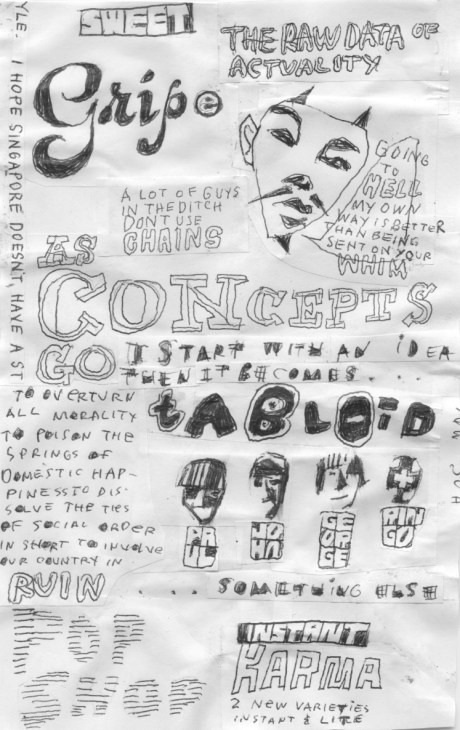 SWEET
THE RAW DATA OF
ACTUALITY
Gripe
YLE. I HOPE SINGAPORE DOESNT, HAVE A ST
A LOT OF GUYS
IN THE DITCH
DONT USE
CHAINS
GOING
TO
HELL
MY OWN
WAY IS BETTER
THAN BEING
SENT ON YOUR
WHIM
AS
CONCEPTS
GO
I START WITH AN IDEA
THEN IT BECOMES . . .
TABLOID
TO OVERTURN
ALL MORALITY
TO POISON THE
SPRINGS OF
DOMESTIC HAP-
PINESS TO DIS-
SOLVE THE TIES
OF SOCIAL ORDER
IN SHORT TO INVOLVE
OUR COUNTRY IN
RUIN
PAUL
JOHN
GEORGE
RINGO
. . . . SOMETHING ELSE
POP
SHOP
INSTANT
KARMA
2 NEW VARIETIES
INSTANT & LITE